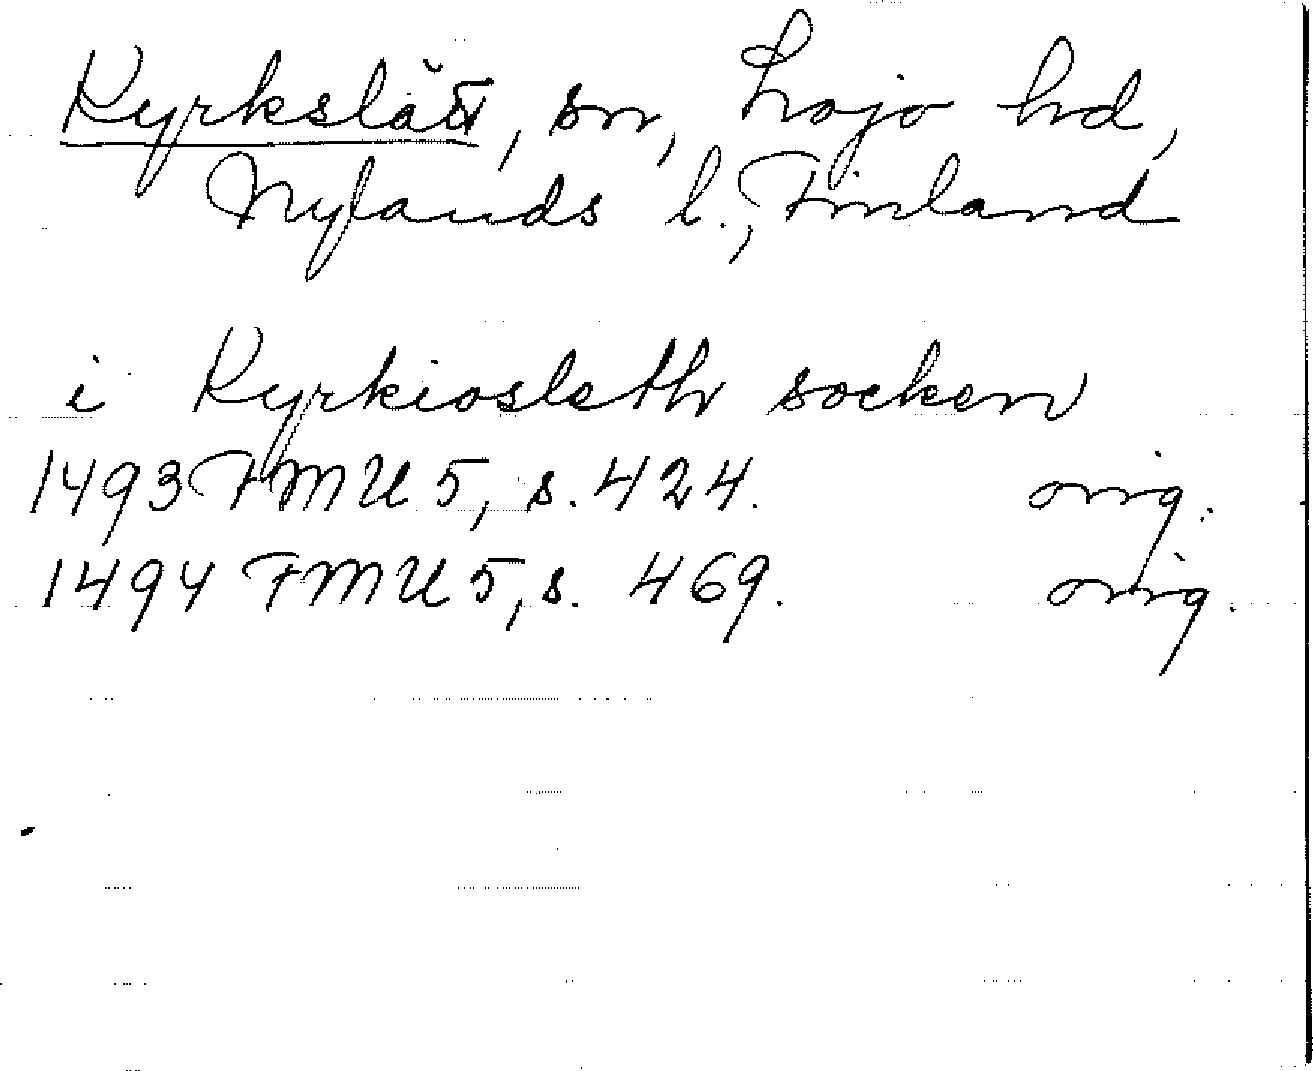 Kyrkslätt, sn, Lojo hd,
Nylands l., Finland
i Kyrkiosleth socken
1493 FMU 5, s. 424. orig.
1494 FMU 5, s. 469. orig.